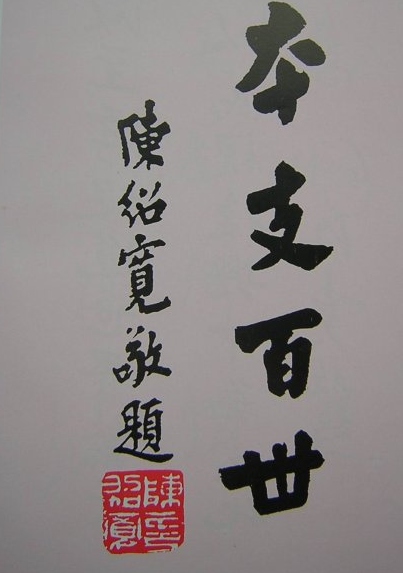 本支百世
陳紹寬敬題
陳紹寬印